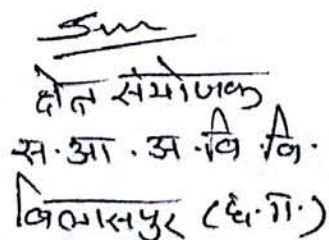 क्षेत्र संयोजक
स.आ.अ.वि.वि.
बिलासपुर (छ.ग.)